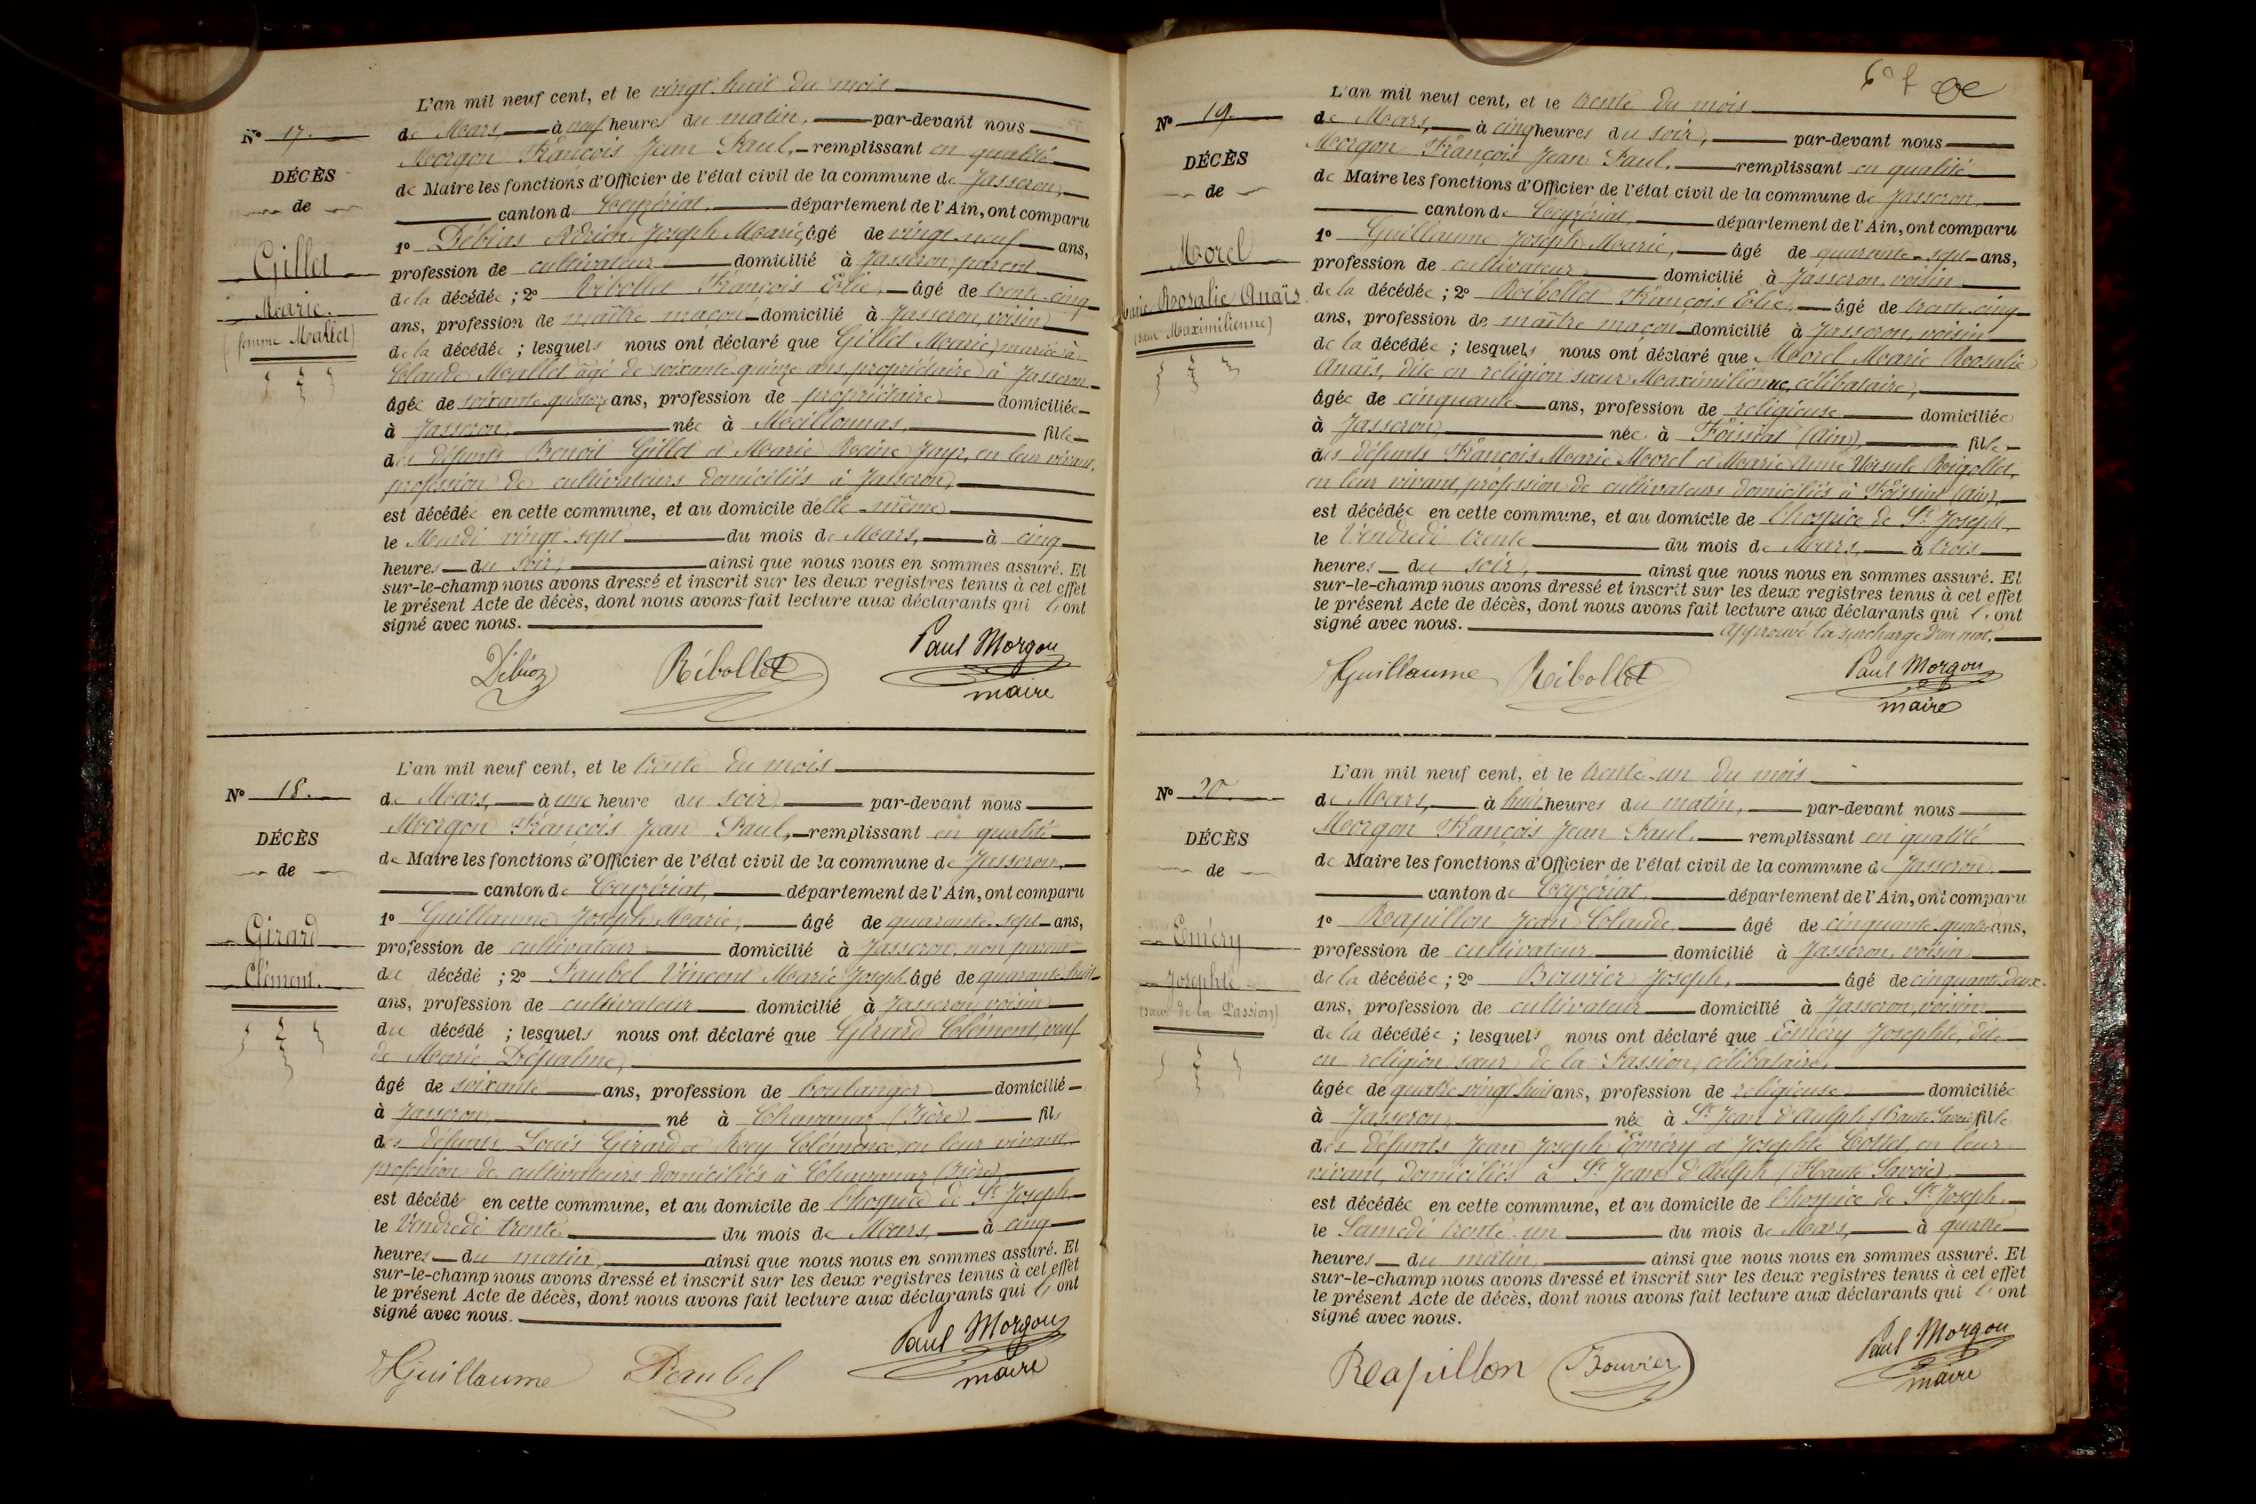 L'an mil neuf cent, et le vingt huit du mois
N° 17.
de Mars, à neuf heures du matin, par-devant nous
Morgon François Jean Paul, remplissant en qualité
DÉCÈS
de Maire les fonctions d'Officier de l'état civil de la commune de Jasseron,
de
canton de Ceyzériat, département de l'Ain, ont comparu
1° Débias Adrien Joseph Marie, âgé de vingt-neuf ans,
Gillet
profession de cultivateur domicilié à Jasseron, parent
de la décédée ; 2° Ribollet François Élie, âgé de trente-cinq
Marie.
ans, profession de maître maçon domicilié à Jasseron, voisin
(femme Mallet)
de la décédée ; lesquels nous ont déclaré que Gillet Marie, mariée à
Claude Mallet âgé de soixante quinze ans, propriétaire à Jasseron
âgée de soixante-quatorze ans, profession de propriétaire domiciliée
à Jasseron, née à Meillonnas, fille
des défunts Benoit Gillet et Marie Reine Jayr, en leur vivant,
profession de cultivateurs domiciliés à Jasseron,
est décédée en cette commune, et au domicile d'elle-même
le Mardi vingt-sept du mois de Mars, à cinq
heures du soir, ainsi que nous nous en sommes assuré. Et
sur-le-champ nous avons dressé et inscrit sur les deux registres tenus à cet effet
le présent Acte de décès, dont nous avons fait lecture aux déclarants qui l'ont
signé avec nous.
Ribollet Paul Morgon
maire
L'an mil neuf cent, et le trente du mois
N° 18.
de Mars, à une heure du soir, par-devant nous
Morgon François Jean Paul, remplissant en qualité
DÉCÈS
de Maire les fonctions d'Officier de l'état civil de la commune de Jasseron,
de
canton de Ceyzériat, département de l'Ain, ont comparu
1° Guillaume Joseph Marie, âgé de quarante-sept ans,
Girard
profession de cultivateur domicilié à Jasseron, non parent
Clément.
du décédé ; 2° Paubel Vincent Marie Joseph âgé de quarante-huit
ans, profession de cultivateur domicilié à Jasseron, voisin
du décédé ; lesquels nous ont déclaré que Girard Clément, veuf
de Marie Dépalme,
âgé de soixante ans, profession de boulanger domicilié
à Jasseron, né à Chavanoz (Isère) fils
des défunts Louis Girard et Rocy Clémence, en leur vivant
profession de cultivateurs domiciliés à Chavanoz (Isère)
est décédé en cette commune, et au domicile de l'hospice de St Joseph
le Vendredi trente du mois de Mars, à cinq
heures du matin, ainsi que nous nous en sommes assuré. Et
sur-le-champ nous avons dressé et inscrit sur les deux registres tenus à cet effet
le présent Acte de décès, dont nous avons fait lecture aux déclarants qui l'ont
signé avec nous.
Guillaume Paubel Paul Morgon
maire
L'an mil neuf cent, et le trente du mois
N° 19.
de Mars, à cinq heures du soir, par-devant nous
Morgon François Jean Paul, remplissant en qualité
DÉCÈS
de Maire les fonctions d'Officier de l'état civil de la commune de Jasseron,
de
canton de Ceyzériat, département de l'Ain, ont comparu
1° Guillaume Joseph Marie, âgé de quarante-sept ans,
Morel
profession de cultivateur domicilié à Jasseron, voisin
Marie Rosalie Anaïs
de la décédée ; 2° Ribollet François Élie, âgé de trente-cinq
(sœur Maximilienne)
ans, profession de maître maçon domicilié à Jasseron, voisin
de la décédée ; lesquels nous ont déclaré que Morel Marie Rosalie
Anaïs, dite en religion sœur Maximilienne, célibataire,
âgée de cinquante ans, profession de religieuse domiciliée
à Jasseron, née à Foissiat (Ain), fille
des défunts François Marie Morel et Marie Anne Ursule Roigollet,
en leur vivant, profession de cultivateurs domiciliés à Foissiat (Ain),
est décédée en cette commune, et au domicile de l'hospice de St Joseph,
le Vendredi trente du mois de Mars, à trois
heures du soir, ainsi que nous nous en sommes assuré. Et
sur-le-champ nous avons dressé et inscrit sur les deux registres tenus à cet effet
le présent Acte de décès, dont nous avons fait lecture aux déclarants qui l'ont
signé avec nous. Approuvé la surcharge d'un mot.
Guillaume Ribollet Paul Morgon
maire
L'an mil neuf cent, et le trente-un du mois
N° 20.
de Mars, à huit heures du matin, par-devant nous
Morgon François Jean Paul, remplissant en qualité
DÉCÈS
de Maire les fonctions d'Officier de l'état civil de la commune de Jasseron,
de
canton de Ceyzériat, département de l'Ain, ont comparu
1° Reapillon Jean Claude, âgé de cinquante-quatre ans,
Éméry
profession de cultivateur domicilié à Jasseron, voisin
Josephte
de la décédée ; 2° Bouvier Joseph, âgé de cinquante-deux
(sœur de la Passion)
ans, profession de cultivateur domicilié à Jasseron, voisin
de la décédée ; lesquels nous ont déclaré que Éméry Josephte, dite
en religion sœur de la Passion, célibataire,
âgée de quatre vingt huit ans, profession de religieuse domiciliée
à Jasseron, née à St Jean d'Aulph (Haute Savoie) fille
des défunts Jean Joseph Éméry et Josephte Cottet, en leur
vivant, domiciliés à St Jean d'Aulph (Haute Savoie)
est décédée en cette commune, et au domicile de l'hospice de St Joseph
le Samedi trente-un du mois de Mars, à quatre
heures du matin, ainsi que nous nous en sommes assuré. Et
sur-le-champ nous avons dressé et inscrit sur les deux registres tenus à cet effet
le présent Acte de décès, dont nous avons fait lecture aux déclarants qui l'ont
signé avec nous.
Reapillon Bouvier Paul Morgon
maire